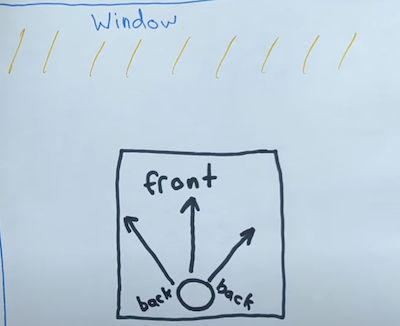 Window
front
back back